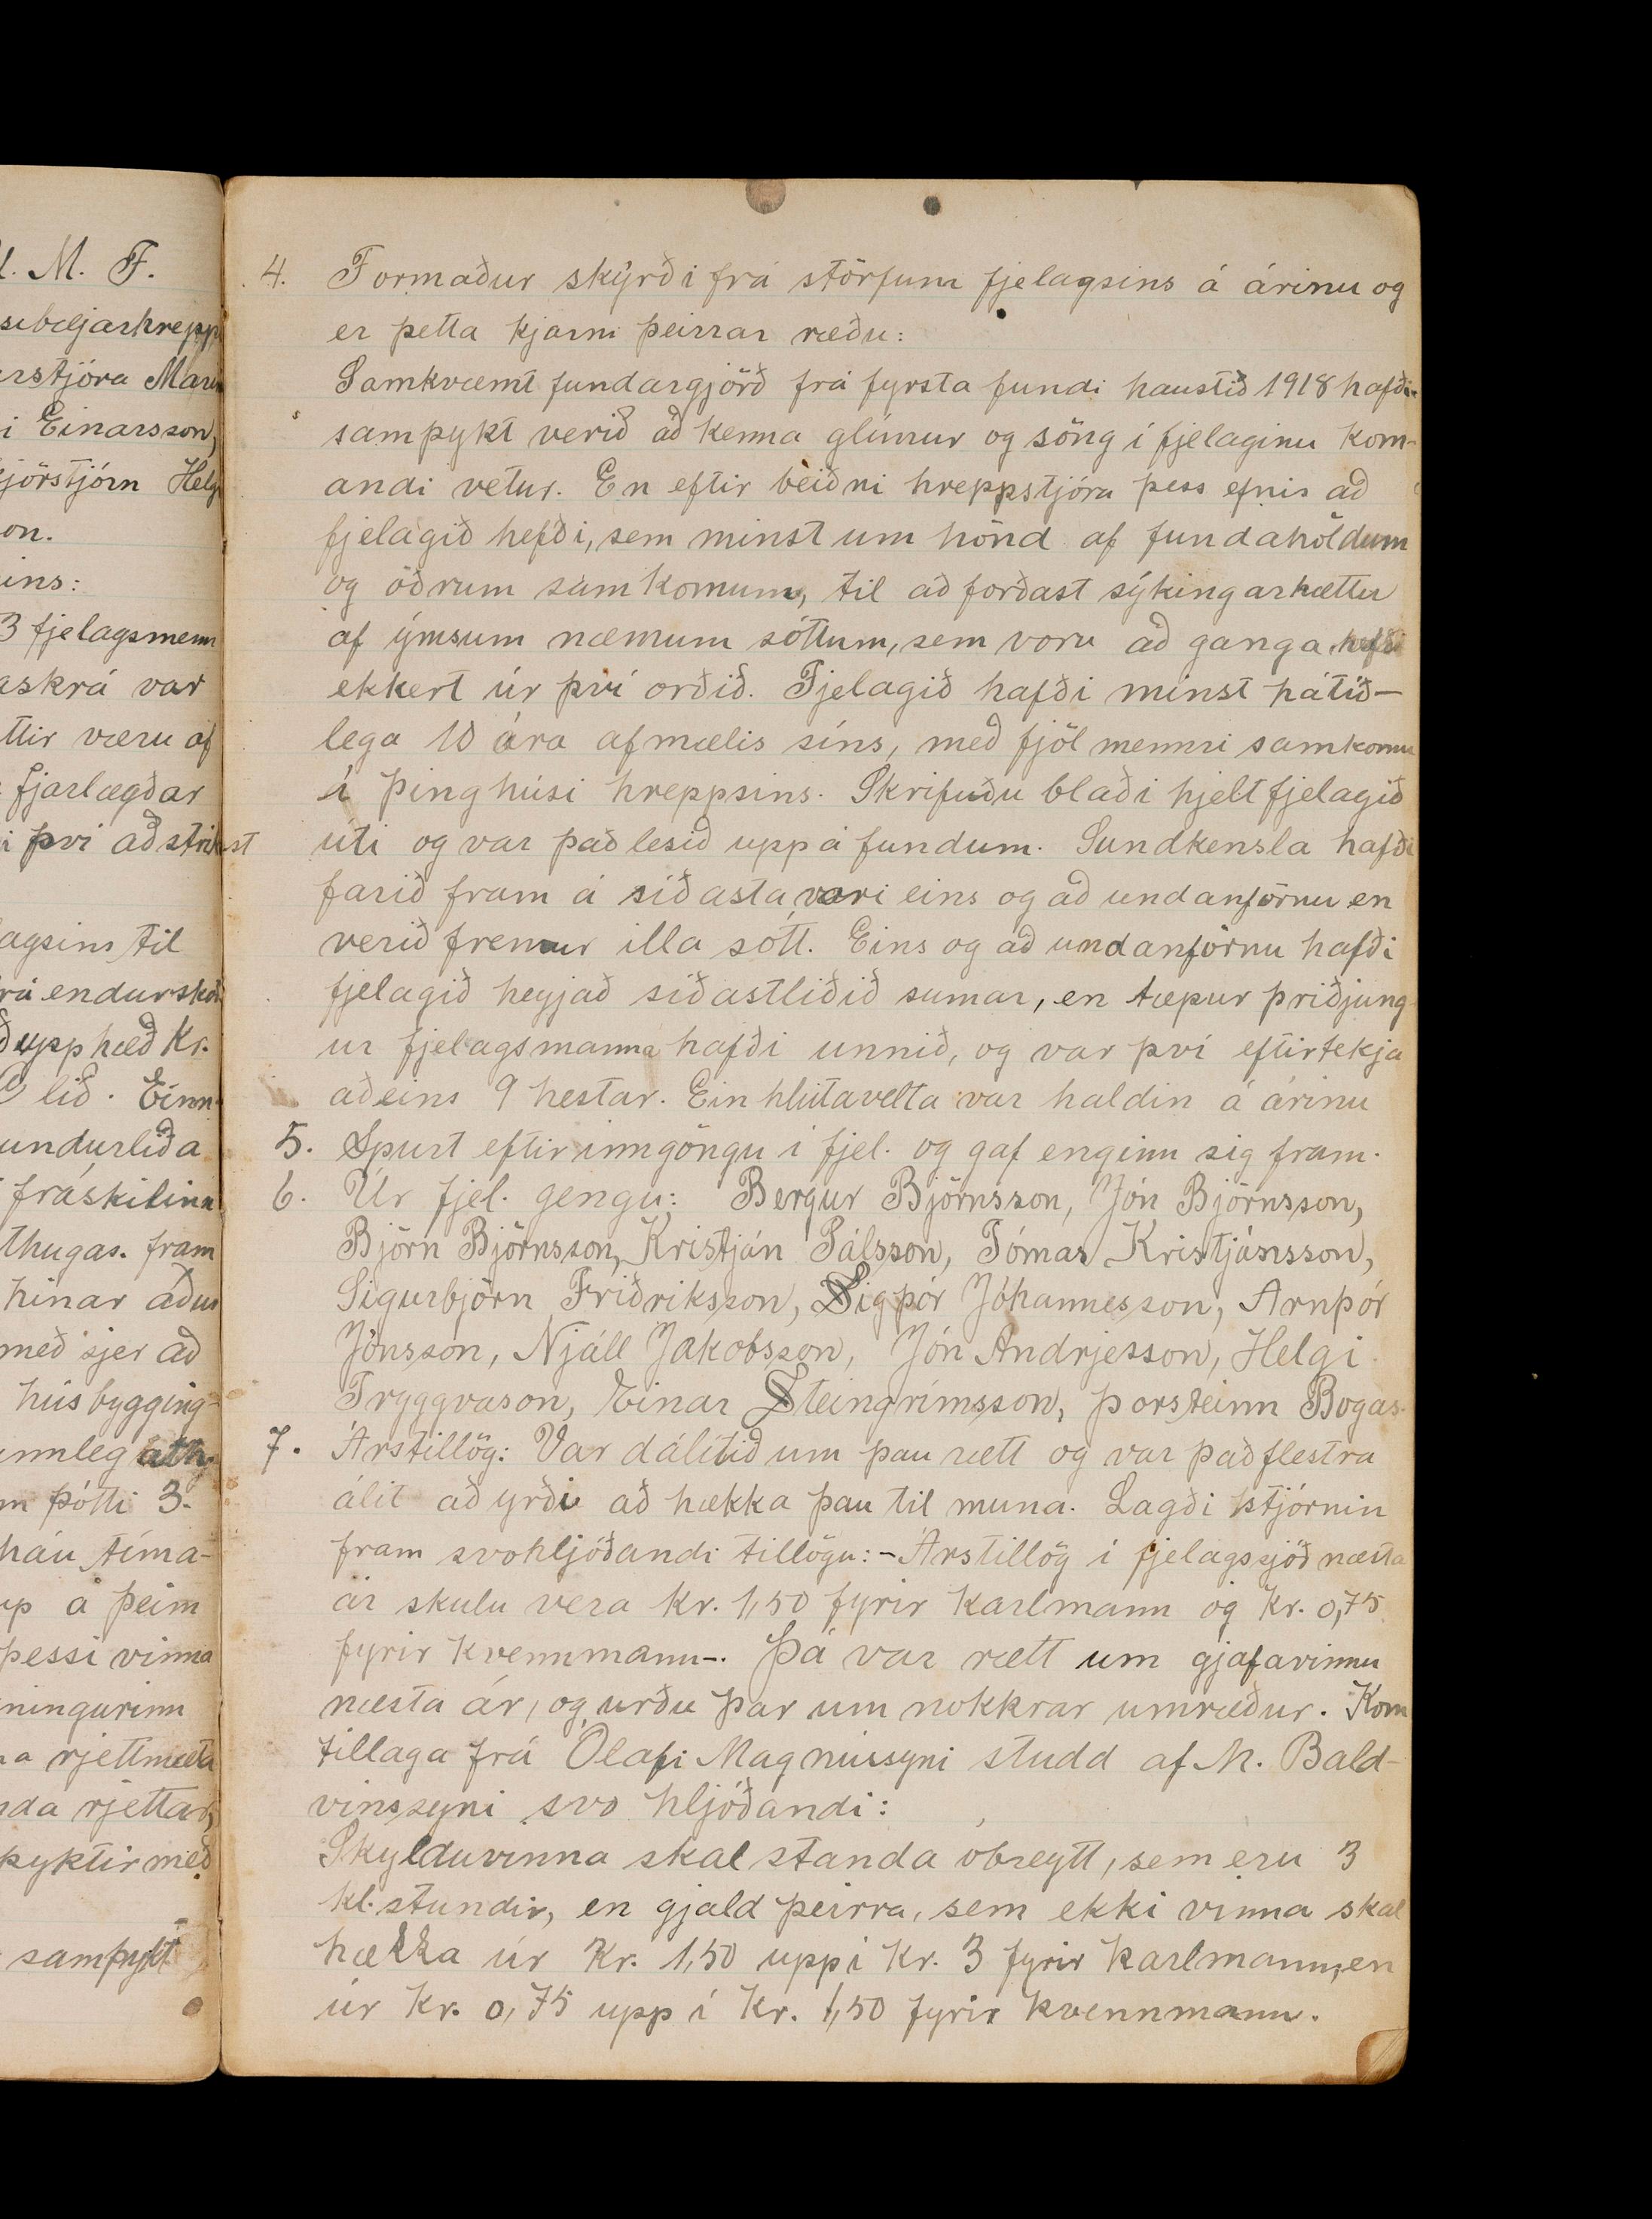 l. M. F.
sibæljarhrepp
rstjóra Mar
i Einarsson,
jörstjórn Helg
on.
ins:
3 fjelagsmenn
askrá var
ttir væru af
fjarlægðar
i því að strikast
agsins til
rá endurskoð
upphæð Kr.
lið. Einn
undurliða
fráskilinn
thugas. fram
hinar áður
með sjer að
húsbygging-
innleg ath
m þótti 3.
háu tíma-
up á þeim
þessi vinna
ningurinn
a rjettmæta
da rjettar,
þyktir með
samþykt
4. Formaður skýrði frá störfum fjelagsins á árinu og
er þetta kjarni þeirrar ræðu:
Samkvæmt fundargjörð frá fyrsta fundi haustið 1918 hafði
samþykt verið að kenna glímur og söng í fjelaginu kom-
andi vetur. En eftir beiðni hreppstjóra þess efnis að
fjelagið hefði, sem minst um hönd af fundahöldum
og öðrum samkomum, til að forðast sýkingarhættu
af ýmsum næmum sóttum, sem voru að ganga hafði
ekkert úr því orðið. Fjelagið hafði minst hátíð-
lega 10 ára afmælis síns, með fjölmennri samkomu
í þinghúsi hreppsins. Skrifuðu blaði hjelt fjelagið
úti og var það lesið upp á fundum. Sundkensla hafði
farið fram á síðasta vori eins og að undanförnu en
verið fremur illa sótt. Eins og að undanförnu hafði
fjelagið heyjað síðastliðið sumar, en tæpur þriðjung-
ur fjelagsmanna hafði unnið, og var því eftirtekja
aðeins 9 hestar. Ein hlutavelta var haldin á árinu
5. Spurt eftir inngöngu í fjel. og gaf enginn sig fram.
6. Úr fjel. gengu: Bergur Björnsson, Jón Björnsson,
Björn Björnsson, Kristján Pálsson, Tómas Kristjánsson,
Sigurbjörn Friðriksson, Sigþór Jóhannesson, Arnþór
Jónsson, Njáll Jakobsson, Jón Andrjesson, Helgi
Tryggvason, Einar Steingrímsson, Þorsteinn Bogas.
7. Árstillög: Var dálítið um þau rætt og var það flestra
álit að yrði að hækka þau til muna. Lagði stjórnin
fram svohljóðandi tillögu:- Árstillög í fjelagssjóð næsta
ár skulu vera kr. 1,50 fyrir karlmann og kr. 0,75
fyrir kvennmann-. Þá var rætt um gjafavinnu
næsta ár, og urðu þar um nokkrar umræður. Kom
tillaga frá Ólafi Magnússyni studd af M. Bald-
vinssyni svo hljóðandi:
Skylduvinna skal standa óbreytt, sem eru 3
kl.stundir, en gjald þeirra, sem ekki vinna skal
hækka úr Kr. 1,50 upp í Kr. 3 fyrir karlmann, en
úr Kr. 0,75 upp í Kr. 1,50 fyrir kvennmann.